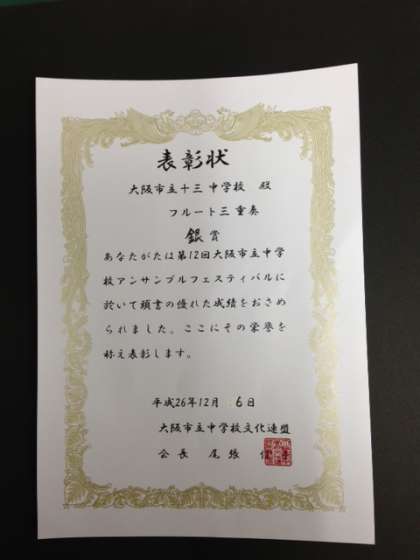 表彰状
大阪市立十三中学校 殿
フルート三重奏
銀賞
あなたがたは第12回大阪市立中学
校アンサンブルフェスティバルに
於いて頭書の優れた成績をおさめ
られました。ここにその栄誉を
称え表彰します。
平成26年12月 6日
大阪市立中学校文化連盟
会長 尾張